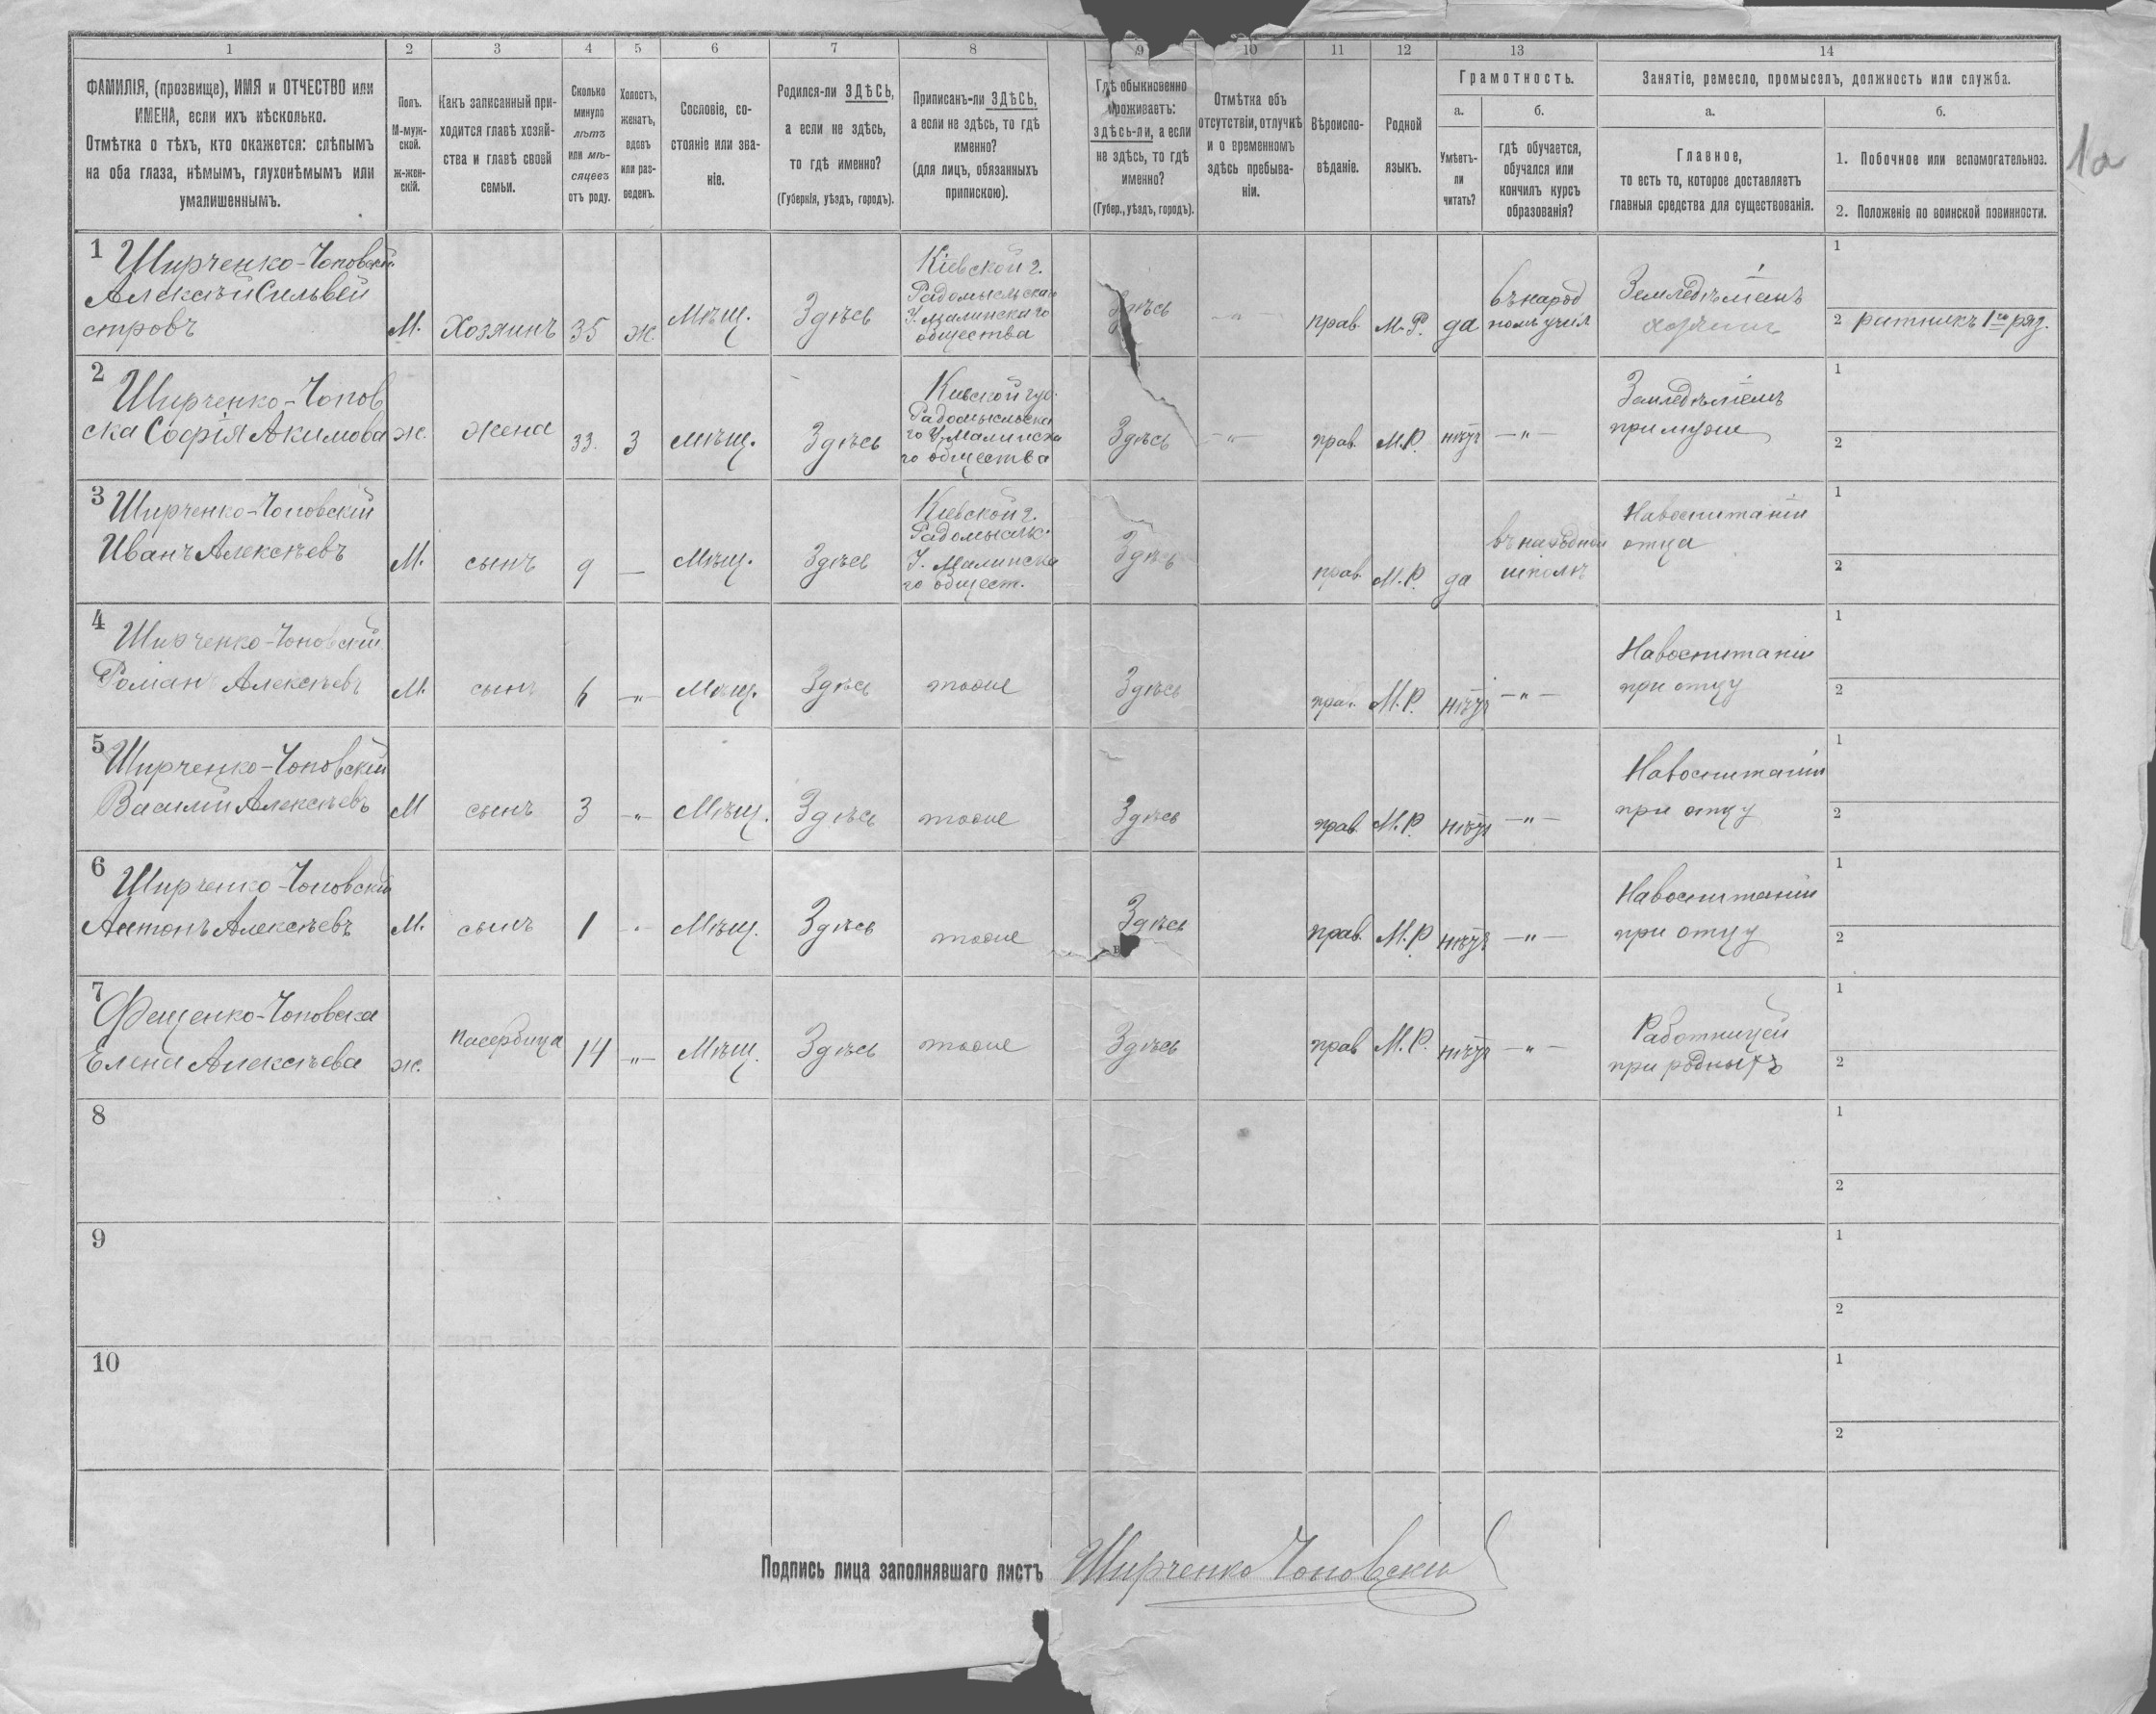 1
2
3
4
5
6
7
8
9
10
11
12
13
14
ФАМИЛІЯ, (прозвище), ИМЯ и ОТЧЕСТВО или
ИМЕНА, если ихъ нѣсколько.
Отмѣтка о тѣхъ, кто окажется: слѣпымъ
на оба глаза, нѣмымъ, глухонѣмымъ или
умалишеннымъ.
Полъ.
М-муж-
ской.
ж-жен-
скій.
Какъ записанный при-
ходится главѣ хозяй-
ства и главѣ своей
семьи.
Сколько
минуло
лѣтъ
или мѣ-
сяцевъ
отъ роду.
Холостъ,
женатъ,
вдовъ
или раз-
веденъ.
Сословіе, со-
стояніе или зва-
ніе.
Родился-ли ЗДѢСЬ,
а если не здѣсь,
то гдѣ именно?
(Губернія, уѣздъ, городъ).
Приписанъ-ли ЗДѢСЬ,
а если не здѣсь, то гдѣ
именно?
(для лицъ, обязанныхъ
припискою).
Гдѣ обыкновенно
проживаетъ:
здѣсь-ли, а если
не здѣсь, то гдѣ
именно?
(Губер., уѣздъ, городъ).
Отмѣтка объ
отсутствіи, отлучкѣ
и о временномъ
здѣсь пребыва-
ніи.
Вѣроиспо-
вѣданіе.
Родной
языкъ.
Грамотность.
а.
б.
Умѣетъ-
ли
читать?
гдѣ обучается,
обучался или
кончилъ курсъ
образованія?
Занятіе, ремесло, промыселъ, должность или служба.
а.
б.
Главное,
то есть то, которое доставляетъ
главныя средства для существованія.
1. Побочное или вспомогательное.
2. Положеніе по воинской повинности.
1а
1 Ширченко-Чоповскій
Алексѣй Сильвей
стровъ
М.
Хозяинъ
35
ж.
Мѣщ.
Здѣсь
Кіевской г.
Радомысльскаго
У. Малинскаго
общества
Здѣсь
-"-
прав.
М.Р.
да
въ народ
номъ учил
Земледѣліемъ
хозяинъ
1
2 ратникъ 1го ряз.
2 Ширченко-Чопов
ска Софія Акимова
ж.
жена
33.
З
мѣщ.
Здѣсь
Киевской губ.
Радомысльска
го У. Малинска
го общества
Здѣсь
-"-
прав.
М.Р.
нѣтъ
-"-
Земледѣліемъ
при мужѣ
1
2
3 Ширченко-Чоповскій
Иванъ Алексѣевъ
М.
сынъ
9
—
Мѣщ.
Здѣсь
Кіевской г.
Радомысльк.
У. Малинска
го общест.
Здѣсь
прав.
М.Р.
да
въ народной
школѣ
На воспитаніи
отца
1
2
4 Ширченко-Чоповскій
Романъ Алексѣевъ
М.
сынъ
6
-"-
Мѣщ.
Здѣсь
тоже
Здѣсь
прав.
М.Р.
нѣтъ
-"-
На воспитаніи
при отцу
1
2
5 Ширченко-Чоповскій
Василій Алексѣевъ
М
сынъ
3
-"-
Мѣщ.
Здѣсь
тоже
Здѣсь
прав.
М.Р.
нѣтъ
-"-
На воспитаніи
при отцу
1
2
6 Ширченко-Чоповскій
Антонъ Алексѣевъ
М.
сынъ
1
-"-
Мѣщ.
Здѣсь
тоже
Здѣсь
прав.
М.Р
нѣтъ
-"-
На воспитаніи
при отцу
1
2
7 Фещенко-Чоповска
Елена Алексѣева
ж.
пасербица
14
-"-
Мѣщ.
Здѣсь
тоже
Здѣсь
прав
М.Р.
нѣтъ
-"-
Работницей
при родныхъ
1
2
8
1
2
9
1
2
10
1
2
Подпись лица заполнявшаго листъ Ширченко Чоповскій